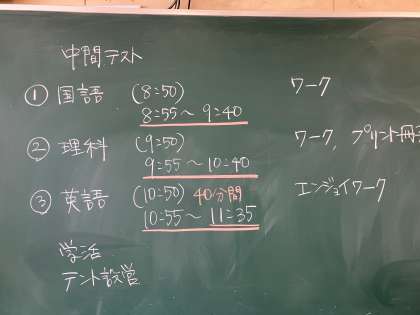 中間テスト
① 国語 (8:50) ワーク
8:55～9:40
② 理科 (9:50) ワーク, プリント冊子
9:55～10:40
③ 英語 (10:50) 40分間 エンジョイワーク
10:55～11:35
学活
テント設営